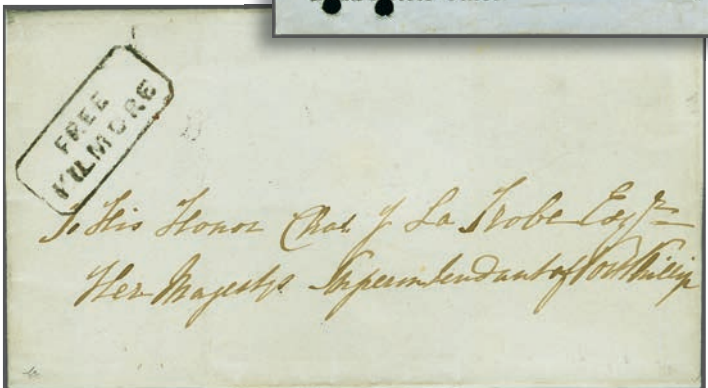 FREE
KILMORE
To His Honor Chas J La Trobe Esqre
Her Majestys Superintendant of Port Phillip